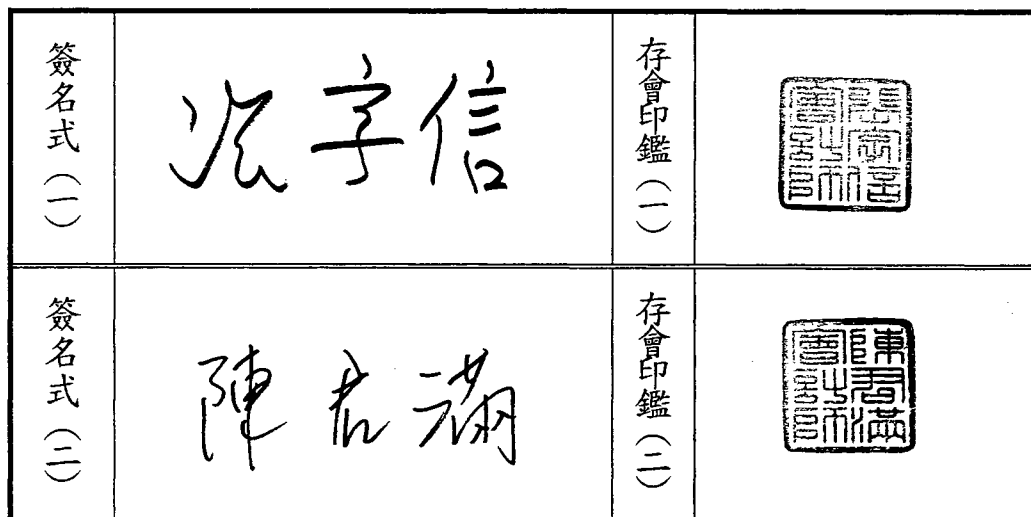 簽名式（一）
張字信
存會印鑑（一）
張字信
會計師
簽名式（二）
陳君滿
存會印鑑（二）
陳君滿
會計師